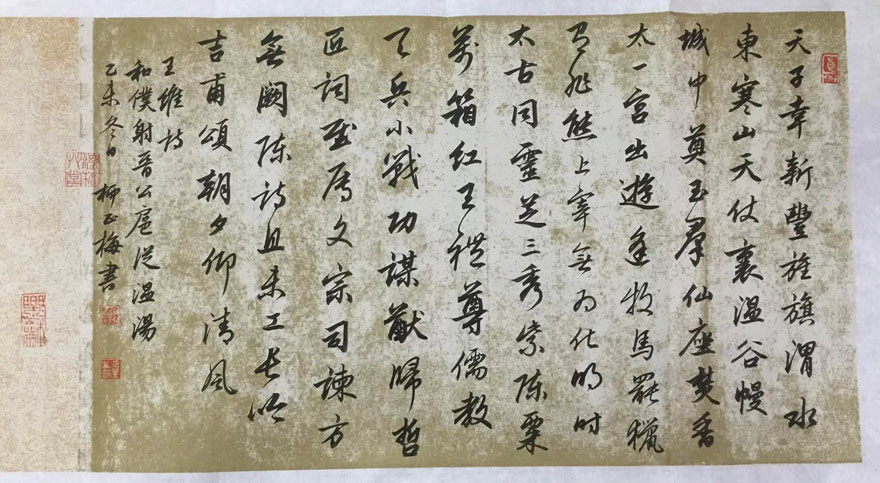 天子幸新豐旌旗渭水
東寒山天仗裏溫谷幔
城中奠玉羣仙座焚香
太一宮出遊逢牧馬罷獵
見非熊上宰無為化明時
太古同靈芝三秀紫陳粟
萬箱紅王禮尊儒教
天兵小戰功謀猷歸哲
匠詞賦屬文宗司諫方
無闕陳詩且未工長吟
吉甫頌朝夕仰清風
王維詩
和僕射晉公扈從溫湯
乙未冬日 柳正梅書